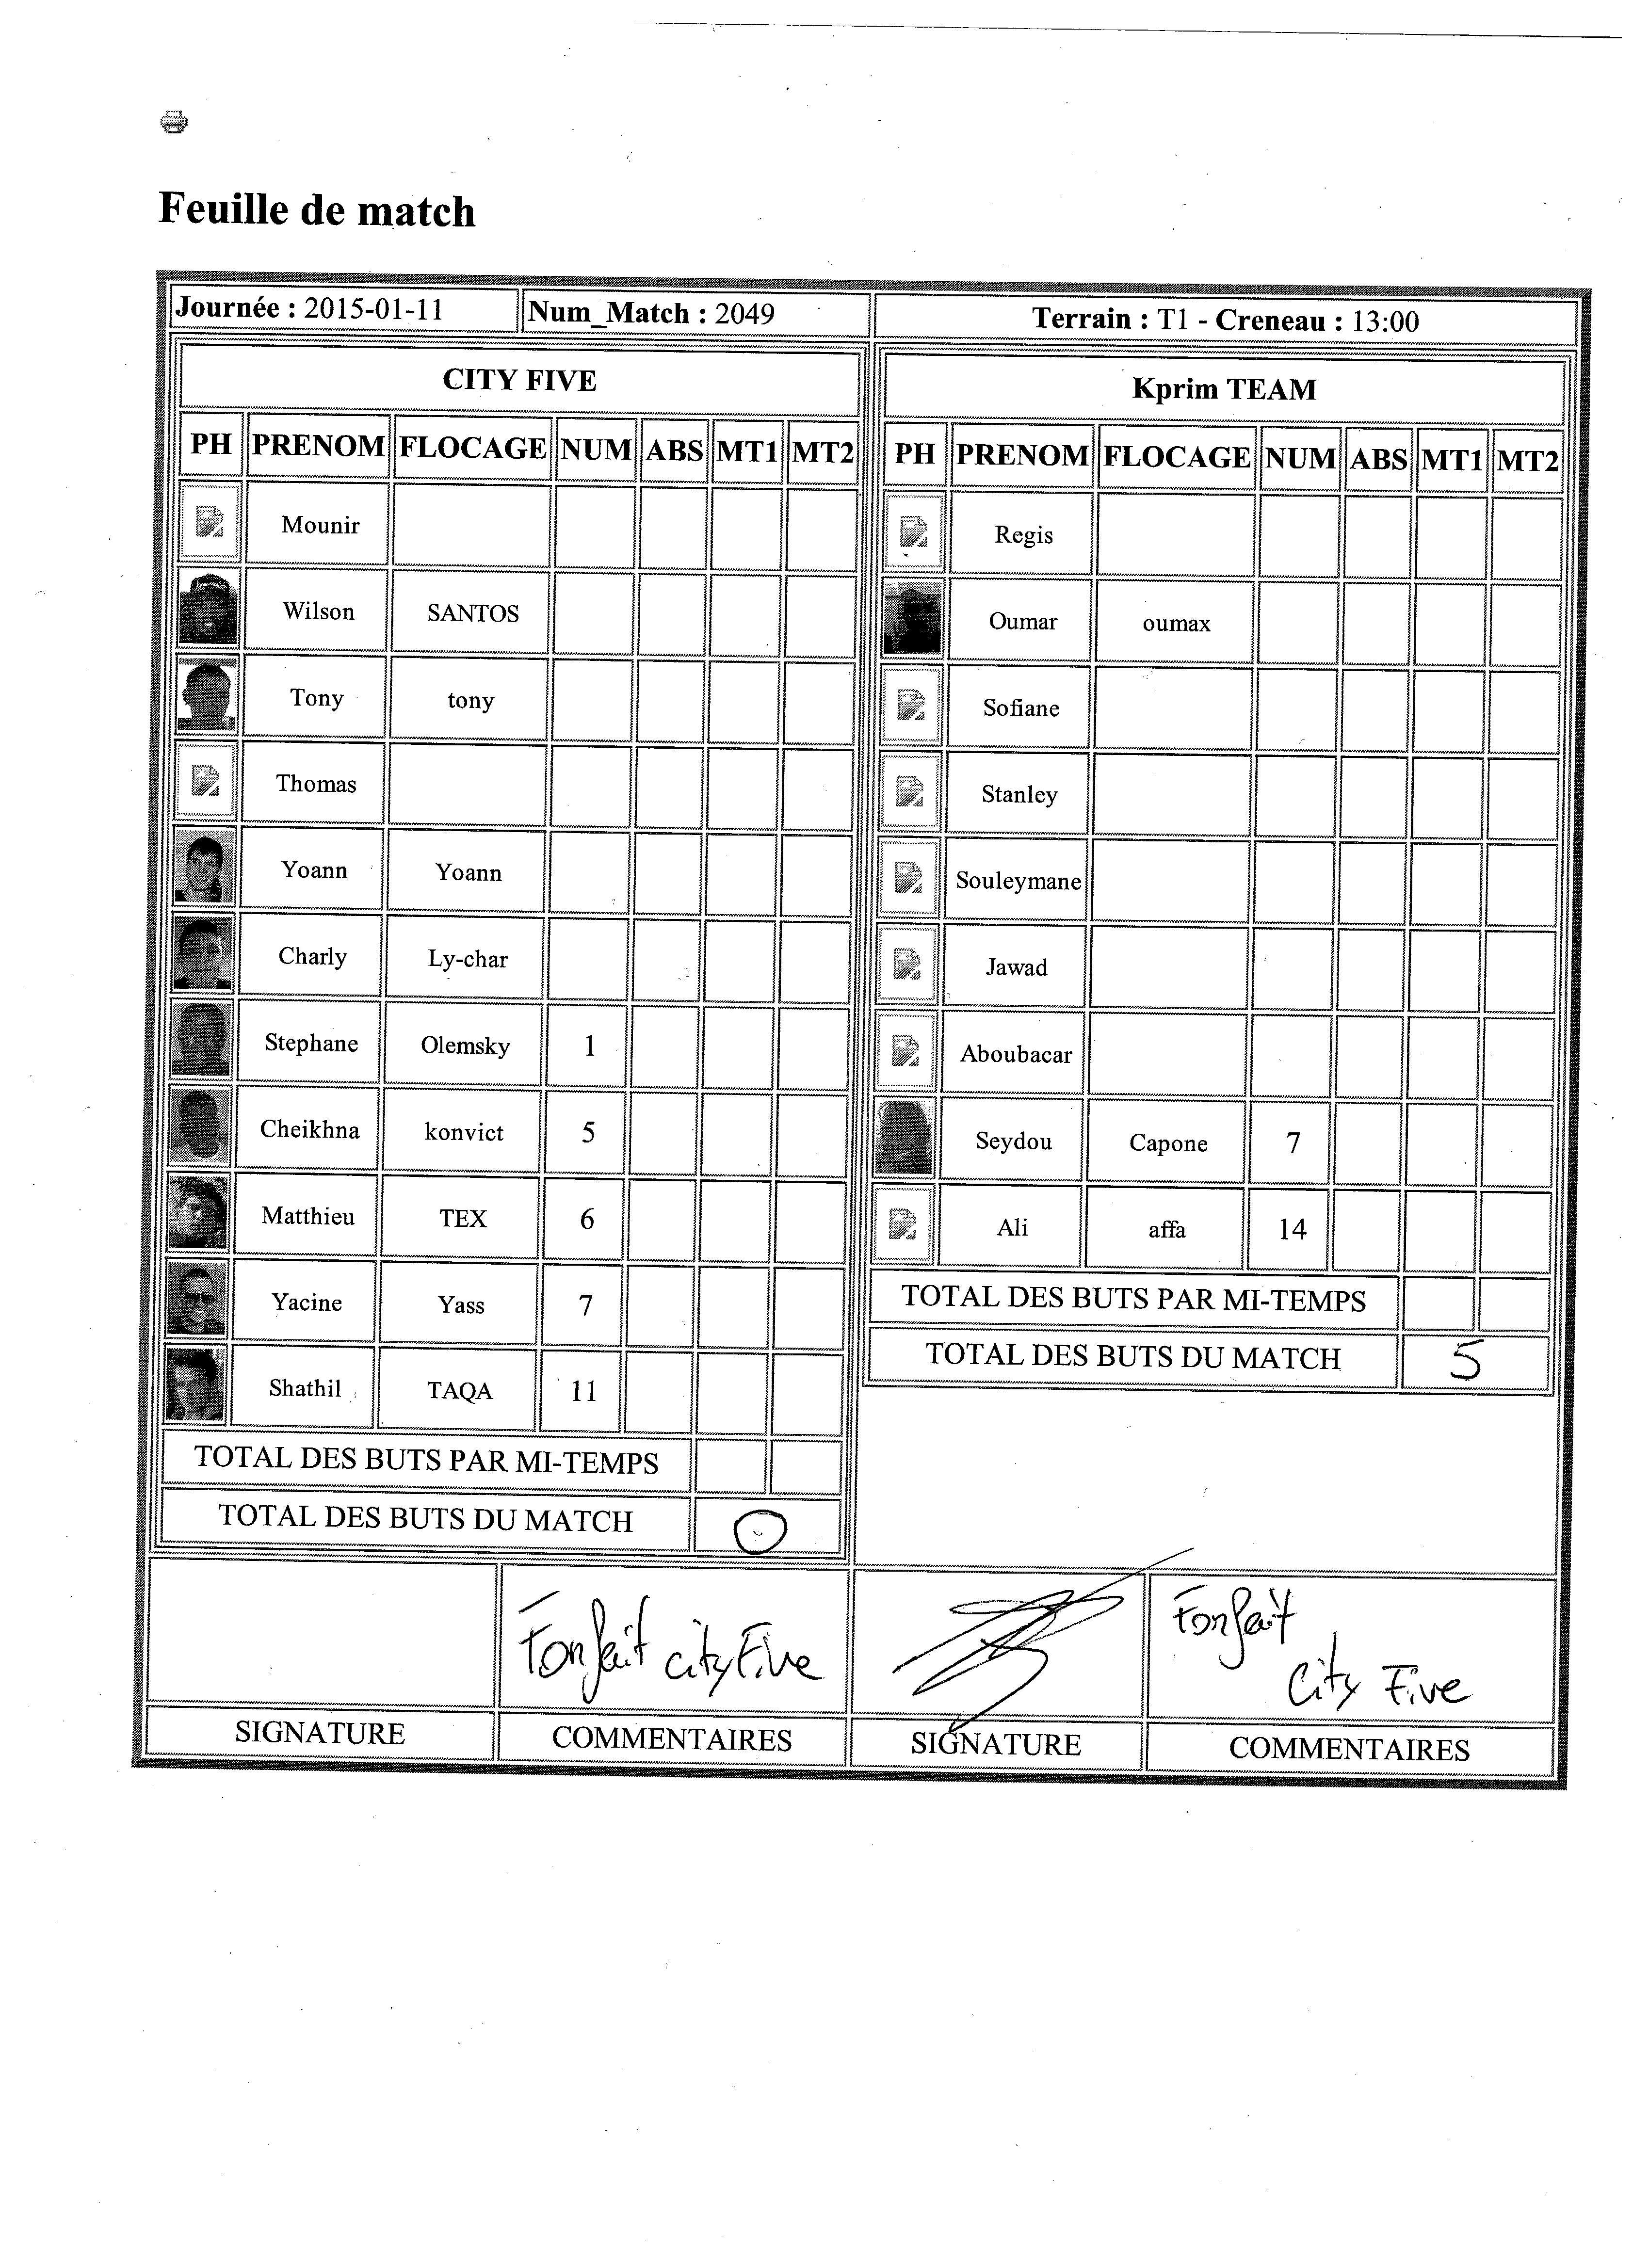 Feuille de match
Journée : 2015-01-11 Num_Match : 2049 Terrain : T1 - Creneau : 13:00
CITY FIVE
PH PRENOM FLOCAGE NUM ABS MT1 MT2
Mounir
Wilson SANTOS
Tony tony
Thomas
Yoann Yoann
Charly Ly-char
Stephane Olemsky 1
Cheikhna konvict 5
Matthieu TEX 6
Yacine Yass 7
Shathil TAQA 11
TOTAL DES BUTS PAR MI-TEMPS
TOTAL DES BUTS DU MATCH 0
Kprim TEAM
PH PRENOM FLOCAGE NUM ABS MT1 MT2
Regis
Oumar oumax
Sofiane
Stanley
Souleymane
Jawad
Aboubacar
Seydou Capone 7
Ali affa 14
TOTAL DES BUTS PAR MI-TEMPS
TOTAL DES BUTS DU MATCH 5
Forfait city Five
Forfait
City Five
SIGNATURE COMMENTAIRES SIGNATURE COMMENTAIRES